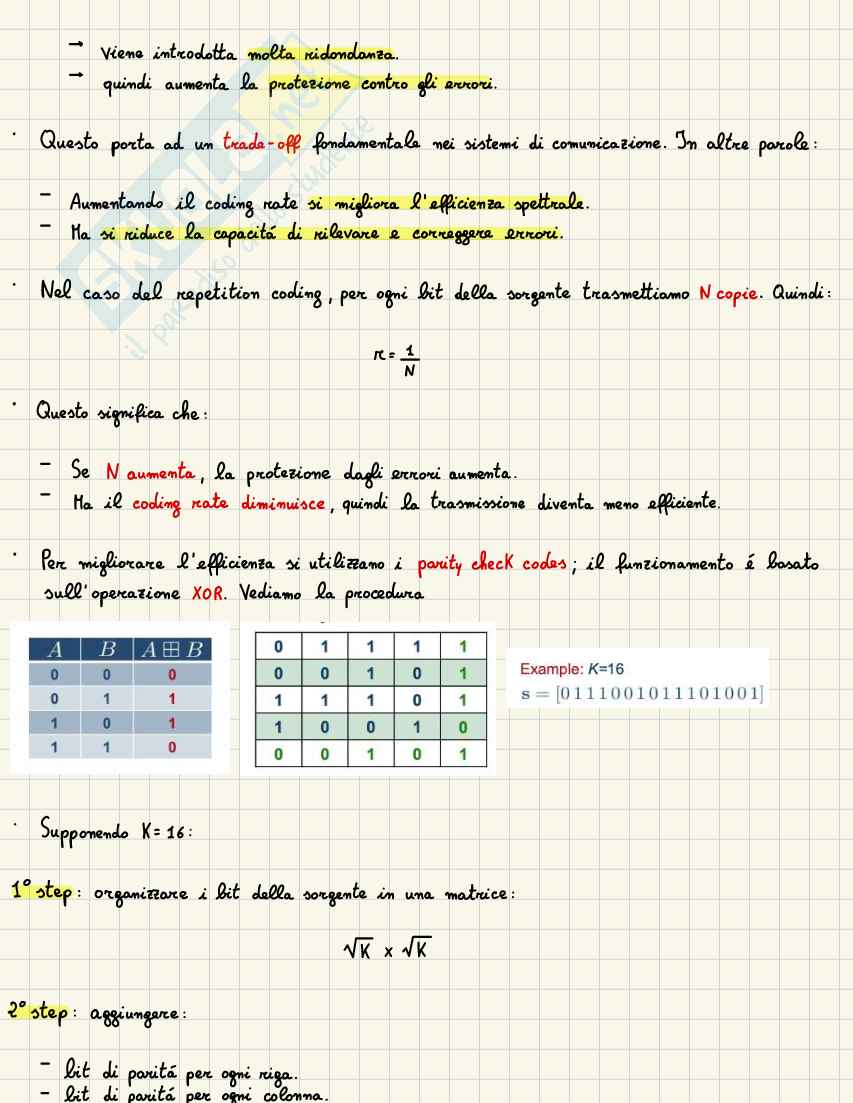 → Viene introdotta molta ridondanza.
→ quindi aumenta la protezione contro gli errori.
· Questo porta ad un trade-off fondamentale nei sistemi di comunicazione. In altre parole:
- Aumentando il coding rate si migliora l'efficienza spettrale.
- Ma si riduce la capacitá di rilevare e correggere errori.
· Nel caso del repetition coding, per ogni bit della sorgente trasmettiamo N copie. Quindi:
r = 1/N
· Questo significa che:
- Se N aumenta, la protezione dagli errori aumenta.
- Ma il coding rate diminuisce, quindi la trasmissione diventa meno efficiente.
· Per migliorare l'efficienza si utilizzano i parity check codes; il funzionamento é basato
sull'operazione XOR. Vediamo la procedura
A B A ⊞ B
0 0 0
0 1 1
1 0 1
1 1 0
0 1 1 1 1
0 0 1 0 1
1 1 1 0 1
1 0 0 1 0
0 0 1 0 1
Example: K=16
s = [0111001011101001]
· Supponendo K = 16:
1° step: organizzare i bit della sorgente in una matrice:
√K x √K
2° step: aggiungere:
- bit di paritá per ogni riga.
- bit di paritá per ogni colonna.
SKUOLA.net
il paradiso dello studente